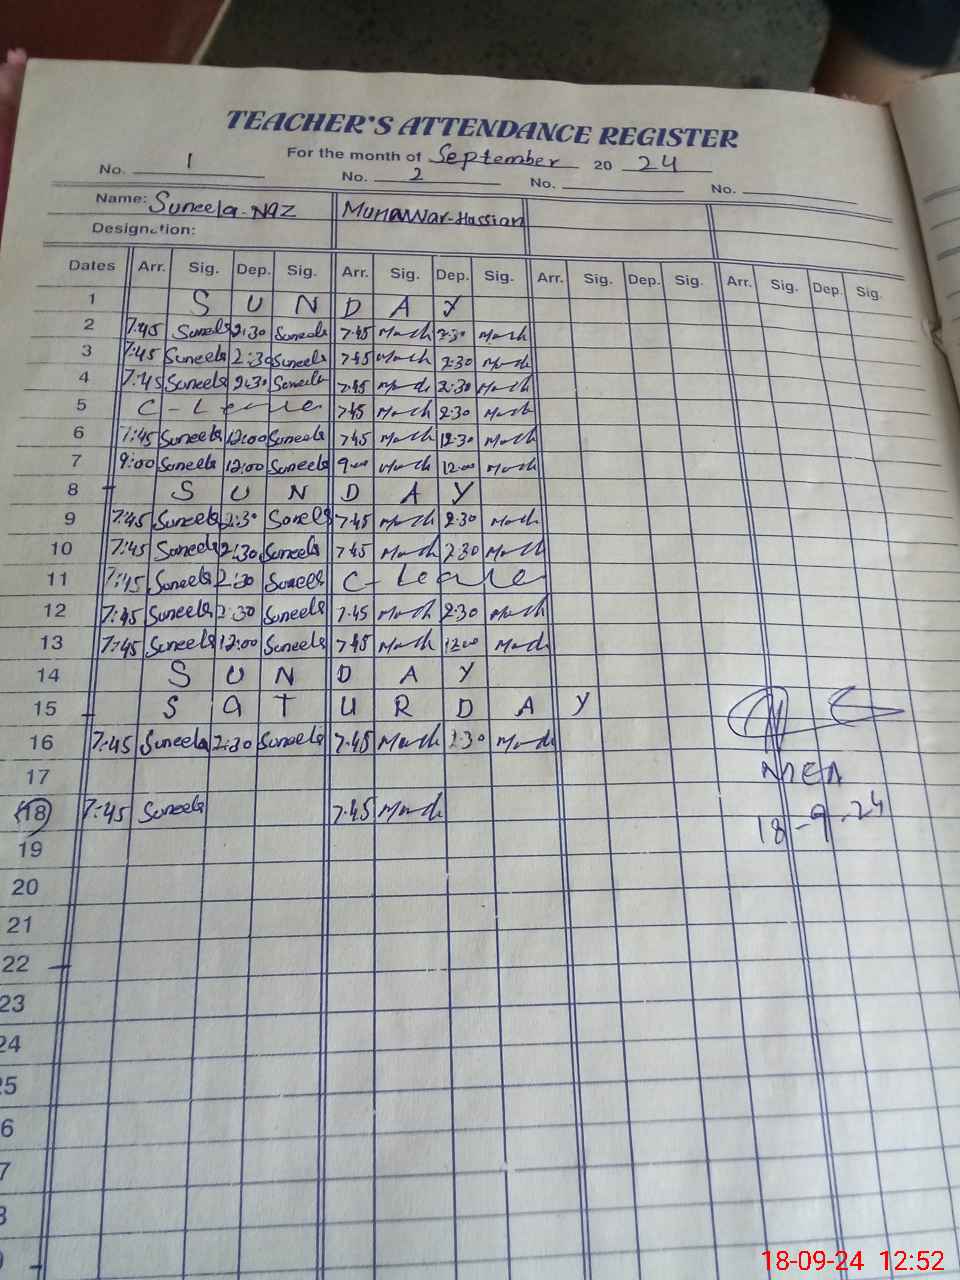 TEACHER'S ATTENDANCE REGISTER
For the month of September 20 24
No. 1 No. 2 No. No.
Name: Suneela-Naz Munawar-Hassian
Designation:
Dates Arr. Sig. Dep. Sig. Arr. Sig. Dep. Sig. Arr. Sig. Dep. Sig. Arr. Sig. Dep. Sig.
1 S U N D A Y
2 7:45 Suneela 2:30 Suneela 7:45 2:30
3 7:45 Suneela 2:30 Suneela 7:45 2:30
4 7:45 Suneela 2:30 Suneela 7:45 2:30
5 C-Leave 7:45 2:30
6 7:45 Suneela 12:00 Suneela 7:45 12:30
7 9:00 Suneela 12:00 Suneela 9:00 12:00
8 S U N D A Y
9 7:45 Suneela 2:30 Suneela 7:45 2:30
10 7:45 Suneela 2:30 Suneela 7:45 2:30
11 7:45 Suneela 2:30 Suneela C-Leave
12 7:45 Suneela 2:30 Suneela 7:45 2:30
13 7:45 Suneela 12:00 Suneela 7:45 12:00
14 S U N D A Y
15 S A T U R D A Y
16 7:45 Suneela 2:30 Suneela 7:45 2:30
17
MEA
18 7:45 Suneela 7:45
18-9-24
19
20
21
22
23
24
25
6
7
8
18-09-24 12:52